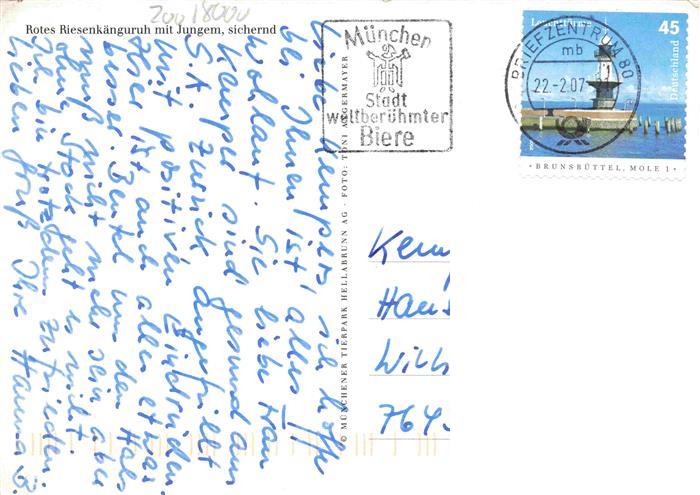 200 18000
Rotes Riesenkänguruh mit Jungem, sichernd
München
Stadt
weltberühmter
Biere
BRIEFZENTRUM 80
mb
22.-2.07
Leuchttürme
45
Deutschland
BRUNSBÜTTEL, MOLE 1
© MÜNCHENER TIERPARK HELLABRUNN AG · FOTO: TONI ANGERMAYER
Liebe Kempers, ich hoffe
bei Ihnen ist alles
wohlauf. Sie liebe Frau
Kemper sind gesund aus
S.A. zurück angefüllt
mit positiven Eindrücken.
Hier ist auch alles etwas
besser. Beutel um den Hals
muß nicht mehr sein aber
ohne Stock geht es nicht
Ich bin trotzdem zufrieden.
Lieben Gruß Ihre Hanna B.
Kem
Haus
Will
764